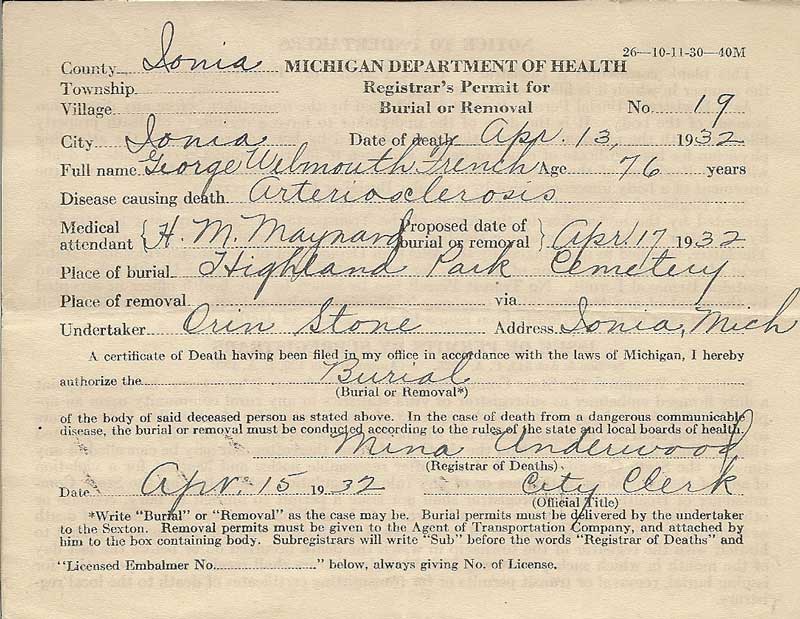 26—10-11-30—40M
County Ionia MICHIGAN DEPARTMENT OF HEALTH
Township Registrar's Permit for
Village Burial or Removal No. 19
City Ionia Date of death Apr. 13, 1932
Full name George Welmouth French Age 76 years
Disease causing death Arteriosclerosis
Medical attendant { H. M. Maynard Proposed date of burial or removal } Apr. 17 1932
Place of burial Highland Park Cemetery
Place of removal via
Undertaker Orin Stone Address Ionia, Mich
A certificate of Death having been filed in my office in accordance with the laws of Michigan, I hereby
authorize the Burial
(Burial or Removal*)
of the body of said deceased person as stated above. In the case of death from a dangerous communicable
disease, the burial or removal must be conducted according to the rules of the state and local boards of health.
Mina Underwood
(Registrar of Deaths)
Date Apr. 15 1932 City Clerk
(Official Title)
*Write "Burial" or "Removal" as the case may be. Burial permits must be delivered by the undertaker
to the Sexton. Removal permits must be given to the Agent of Transportation Company, and attached by
him to the box containing body. Subregistrars will write "Sub" before the words "Registrar of Deaths" and
"Licensed Embalmer No." below, always giving No. of License.